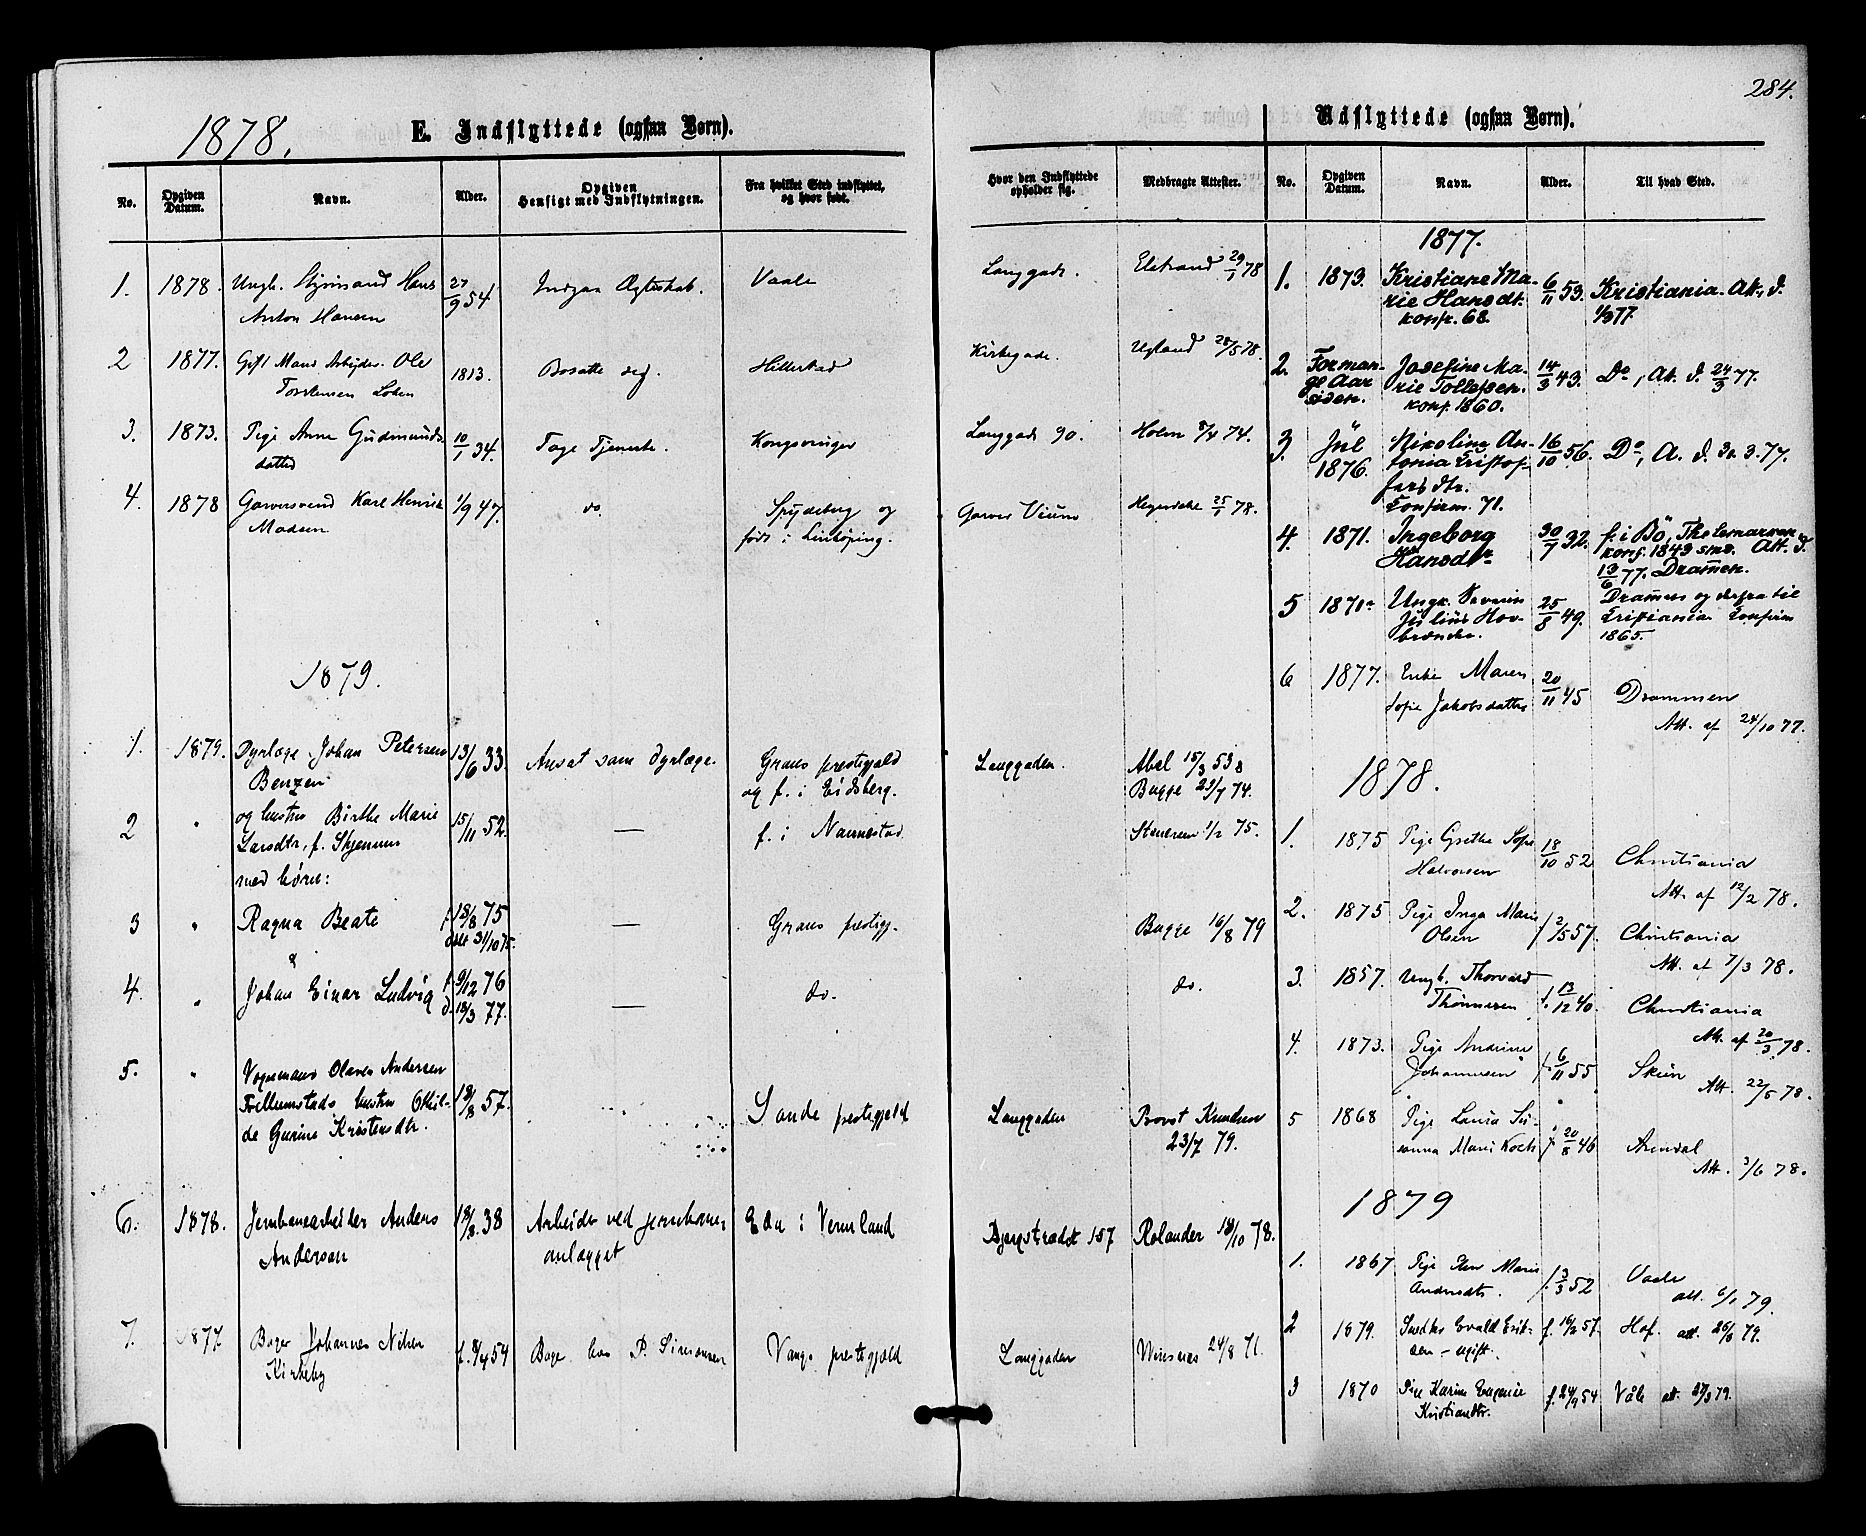 284.
1878.
E. Indflyttede (ogsaa Børn).
No. Opgiven Datum. Navn. Alder. Opgiven Hensigt med Indflytningen. Fra hvilket Sted indflyttet, og hvor født. Hvor den Indflyttede opholder sig. Medbragte Attester.
1. 1878. Ungk. Styrmand Hans 27/9 54 Indgaa Ægteskab. Vaale Langgade. Elstrand 29/1 78
Anton Hansen
2 1877. Gift Mand Arbejder Ole 1813. Bosætte sig. Hillestad Kirkegade. Ugland 28/5 78.
Torstensen
3. 1873. Pige Anne Gudmunds- 10/1 34. Tage Tjeneste. Kongsvinger Langgade 90. Holm 8/4 74.
datter
4. 1878 Garversvend Karl Henrik 1/9 47. do. Spydeberg og Garver 25/1 78.
Madsen født i Linkøping.
1879.
1. 1879. Dyrlæge Johan Petersen 13/6 33. Ansat som dyrlæge. Grans prestegjeld Langgaden. Abel 15/3 53 &
Benzen og f. i Eidsberg. Bugge 23/7 74.
2 " og hustru Birthe Marie 15/11 52. — f. i Nannestad Stenersen 1/2 75.
Larsdtr, f. Skjennum
med børn:
3 " Ragna Beate f. 18/8 75 — Grans prestgj. Bugge 16/8 79
døbt 31/10 75.
&
4. " Johan Einar Ludvig f. 9/12 76 — do. do.
d. 18/3 77.
5. " Vognmand Olaves Andersen
Trillumstads hustru Othil- 18/8 57. Sande prestegjeld Langgaden Provst Knudsen
de Gurine Kristensdtr. 23/7 79.
6. 1878. Jernbanearbeider Anders 18/8. 38 Arbeider ved jernbane- Eda i Vermland Bjergstrædet 157 Rolander 18/10 78.
Anderson anlægget
7. 1877. Bager Johannes Nilsen f. 9/4 54 Bager hos P. Simonsen Vangs prestegjeld Langgaden 24/8 71.
Kirkeby
Udflyttede (ogsaa Børn).
No. Opgiven Datum. Navn. Alder. Til hvad Sted.
1877.
1. 1873. Kristiane Ma- 6/11 53. Kristiania. Att. d.
rie Hansdt. 1/3 77.
konfr. 68.
2. Forman- Josefine Ma- 14/3 43. Do, Att. d. 24/3 77.
ge Aar rie Tollefsen.
siden. konf. 1860.
3. Jul Nikoline An- 16/10 56. Do, A. d. 30. 3. 77.
1876. tonia Cristof-
fersdtr.
Confirm. 71.
4. 1871. Ingeborg 30/7 32. f. i Bö, Thelemarken
Hansdtr konf. 1849 smst. Att. d.
13/6 77. Dramen.
5 1870 Ungk. Severin 25/8 49. Dramen og derfra til
Julius Hov- Cristiania Confirm
brænder. 1865.
6 1877. Enke Maren 20/11 45 Drammen
Sofie Jakobsdatter Att. af 24/10 77.
1878.
1. 1875 Pige Grethe Sofie 18/10 52 Christiania
Halvorsen Att. af 12/2 78.
2. 1875 Pige Inga Marie f. 2/5 57. Christiania
Olsen Att. af 7/3 78.
3. 1857. Ungk. Thorvard f. 13/12 40. Christiania
Thønnesen Att. af 20/3 78.
4. 1873. Pige Andrine f. 6/11 55 Skien
Johannesen Att. 22/5 78.
5 1868 Pige Laura Su- f. 20/8 46 Arendal
sanna Marie Koch Att. 3/6 78.
1879
1. 1867 Pige Marie f. 3/3 52 Vaale
Andersdtr. att. 6/1 79.
2 1879. Snedker Evald Erik- f. 16/2 57. Hof. att. 26/6 79.
sen – ugift.
3 1870 Pige Karine Eugenie f. 24/9 54 Våle att. 27/3 79.
Kristiansdtr.